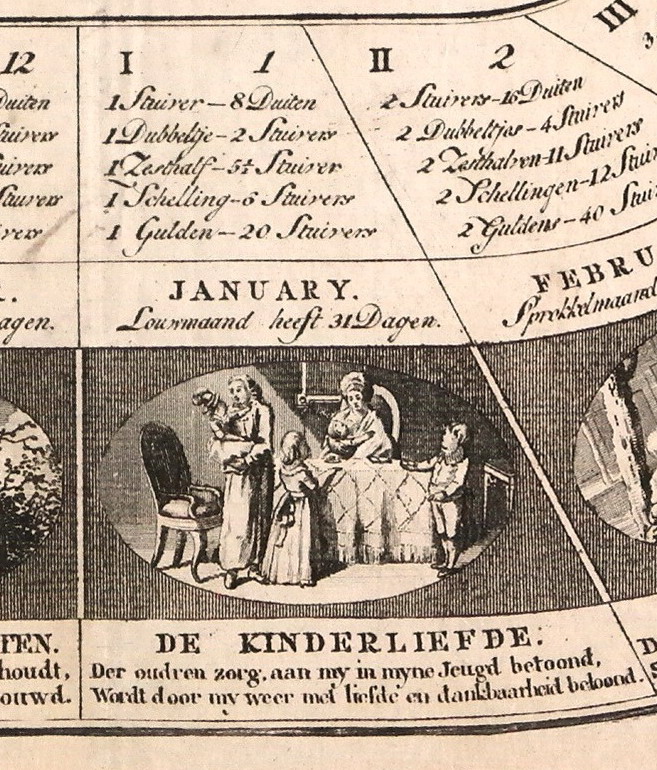 12
Duiten
Stuivers
Stuivers
Stuivers
agen.
TEN.
houdt,
ouwd.
I 1
1 Stuiver – 8 Duiten
1 Dubbeltje – 2 Stuivers
1 Zesthalf – 5½ Stuiver
1 Schelling – 6 Stuivers
1 Gulden – 20 Stuivers
JANUARY.
Louwmaand heeft 31 Dagen.
DE KINDERLIEFDE.
Der oudren zorg, aan my in myne Jeugd betoond,
Wordt door my weer met liefde en dankbaarheid beloond.
II 2
2 Stuivers – 16 Duiten
2 Dubbeltjes – 4 Stuivers
2 Zesthalven – 11 Stuivers
2 Schellingen – 12 Stuiv
2 Guldens – 40 Stui
FEBRU
Sprokkelmaand
III
3